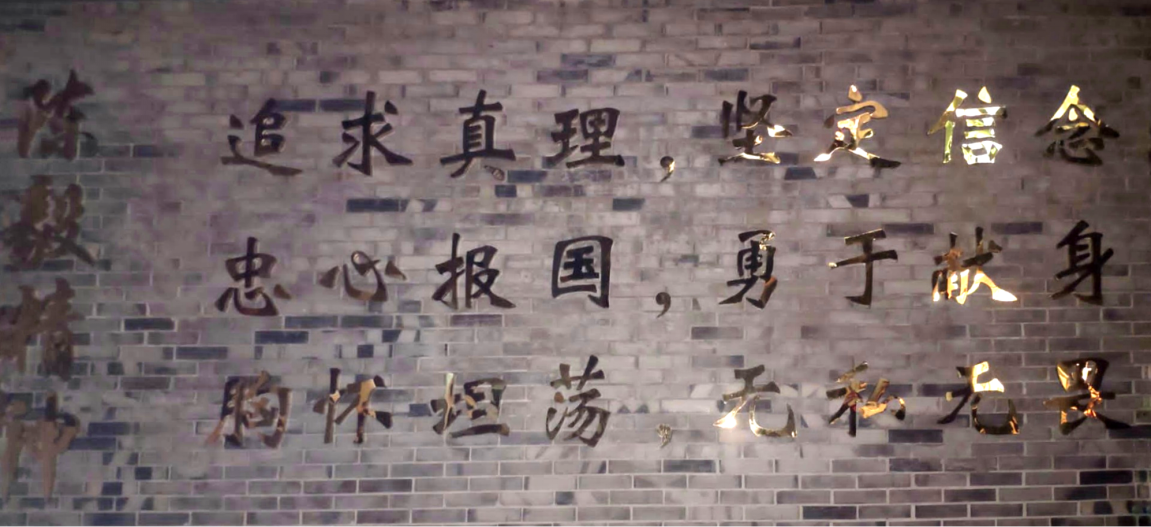 陈毅精神
追求真理，坚定信念
忠心报国，勇于献身
胸怀坦荡，无私无畏